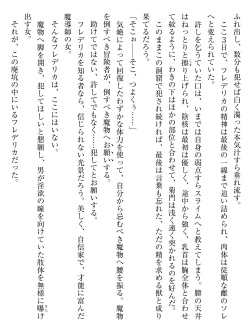 ふれ出し、数分も犯せば白く濁った本気汁すら垂れ流す。
ここ三日で、フレデリカの精神は最後の一線まで追い詰められ、肉体は従順な雌のソレ
へと変えられていた。
許しを乞うていた口は、いまでは自身の弱点すらスライムへと教えてしまう。膣の天井
はねっとりと擦り上げられ、陰核は最初は優しく、途中から強く、乳首は胸全体と合わせ
て可愛がられ、わきの下はほかの部位と合わせて、菊門は浅く速く突かれるのを好んだ。
このままこの洞窟で犯され続ければ、最後は言葉も忘れた、ただの精を求める獣と成り
果てるだろう。
「そこぉ……そこ、つよくぅ……」
気絶によって回復したわずかな体力を使って、自分から忌むべき魔物へ腰を振る。魔物
を倒すべき冒険者が、倒すべき魔物へお願いする。
助けてではない、許してでもなく――犯してとお願いする。
フレデリカを知る者なら、信じられない光景だろう。美しく、自信家で、才能に富んだ
魔導師の女。
そんなフレデリカは、ここにはいない。
魔物へ脚を開き、犯してほしいと懇願し、男が淫欲の味を向けていた肢体を無様に曝け
出す女。
それが、この廃坑の中にいるフレデリカだった。